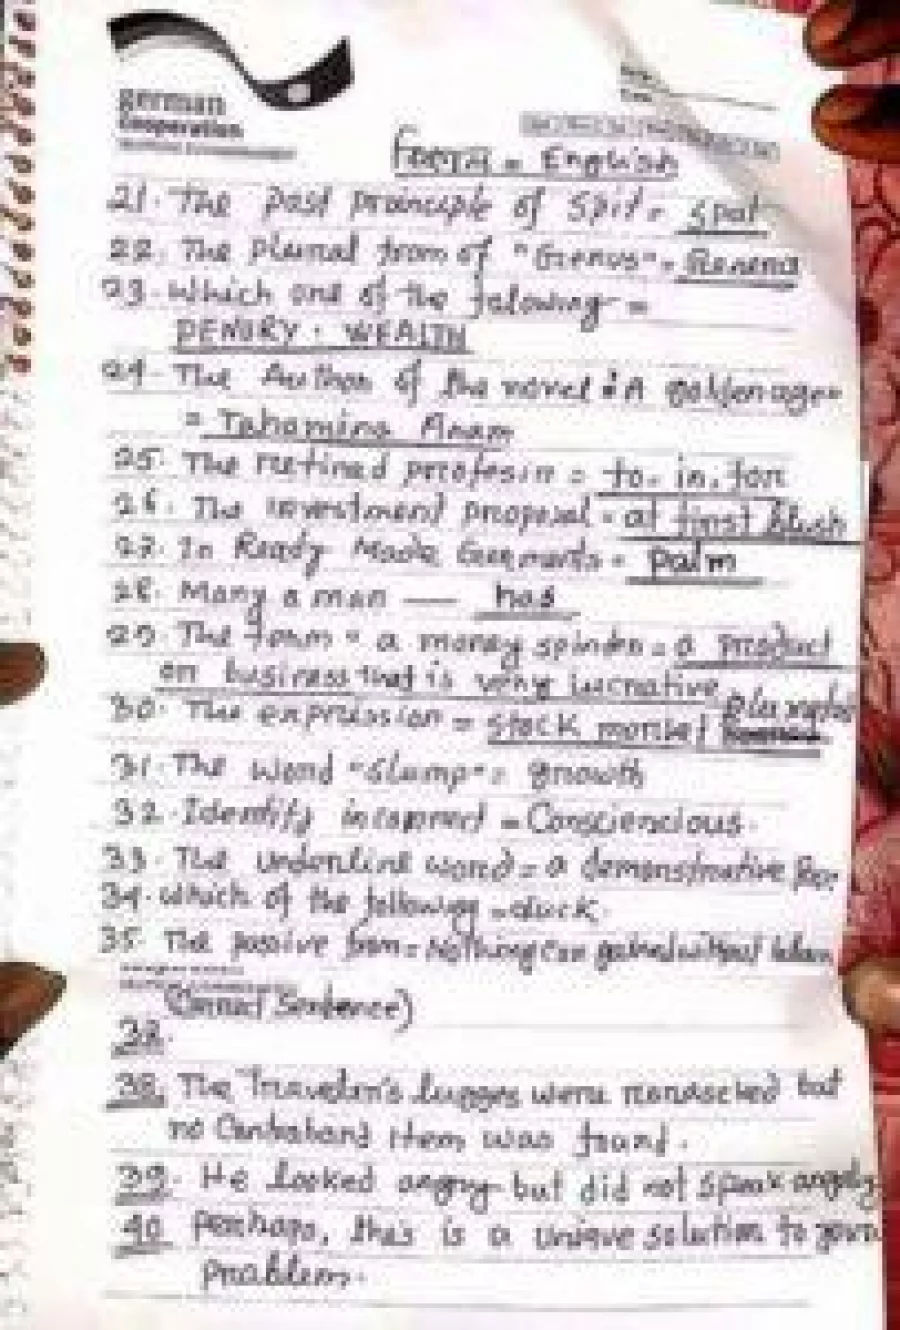 german
Cooperation
English
21. The past principle of spit = spat
22. The Plural from of "Genus" = Genera
23. Which one of the folowing =
PENURY . WEALTH
24. The Author of the novel : A golden age
= Tahamina Anam
25. The Retired profesin = to- in, for
26. The investment proposal = at first blush
27. In Ready Made Germents = palm
28. Many a man — has
29. The term " a money spinder = a product
on business that is very lucrative
30. The expression = stock market
31. The word "slump" = growth
32. Identify incorrect = Consciencious.
33. The underline word = a demonstrative
34. Which of the following = duck.
35. The passive from = Nothing can gained without
(Correct Sentence)
38. The Traveler's lugges were ransacked but
no Contraband item was found.
39. He looked angry but did not speak angrly
40 Perhaps, this is a unique solution to your
problem.